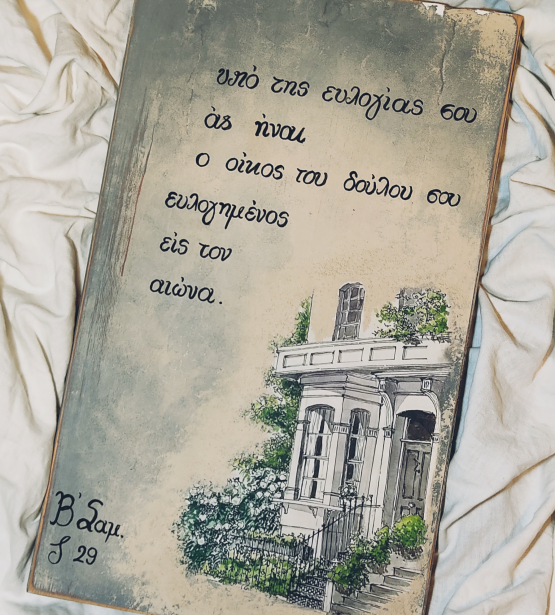 υπό της ευλογίας σου
ἀς ἠναι
ο οίκος του δούλου σου
ευλογημένος
εἰς τον
αιώνα.
Β' Σαμ.
ζ 29